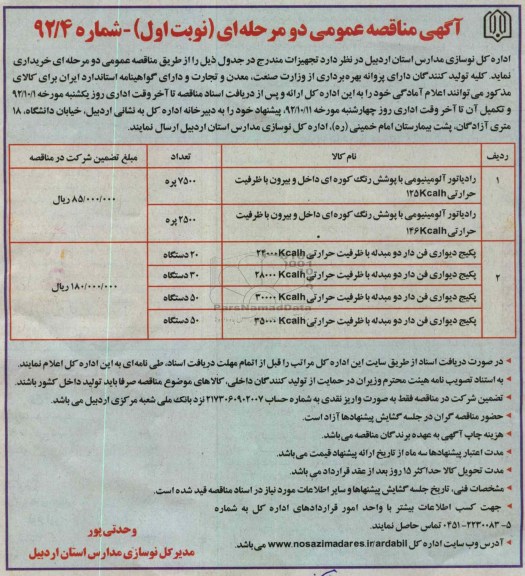 آگهی مناقصه عمومی دو مرحله‌ای (نوبت اول) - شماره ۹۲/۴
اداره کل نوسازی مدارس استان اردبیل در نظر دارد تجهیزات مندرج در جدول ذیل را از طریق مناقصه عمومی دو مرحله‌ای خریداری
نماید. کلیه تولید کنندگان دارای پروانه بهره‌برداری از وزارت صنعت، معدن و تجارت و دارای گواهینامه استاندارد ایران برای کالای
مذکور می توانند اعلام آمادگی خود را به این اداره کل ارائه و پس از دریافت اسناد مناقصه تا آخر وقت اداری روز یکشنبه مورخه ۹۲/۱۰/۱
و تکمیل آن تا آخر وقت اداری روز چهارشنبه مورخه ۹۲/۱۰/۱۱، پیشنهاد خود را به دبیرخانه اداره کل به نشانی اردبیل، خیابان دانشگاه، ۱۸
متری آزادگان، پشت بیمارستان امام خمینی (ره)، اداره کل نوسازی مدارس استان اردبیل ارسال نمایند.
ردیف نام کالا تعداد مبلغ تضمین شرکت در مناقصه
۱ رادیاتور آلومینیومی با پوشش رنگ کوره ای داخل و بیرون با ظرفیت حرارتی ۱۲۵Kcalh ۷۵۰۰ پره ۸۵/۰۰۰/۰۰۰ ریال
رادیاتور آلومینیومی با پوشش رنگ کوره‌ای داخل و بیرون با ظرفیت حرارتی ۱۴۶Kcalh ۲۵۰۰ پره
۲ پکیج دیواری فن دار دو مبدله با ظرفیت حرارتی ۲۴۰۰۰Kcalh ۲۰ دستگاه ۱۸۰/۰۰۰/۰۰۰ ریال
پکیج دیواری فن دار دو مبدله با ظرفیت حرارتی ۲۸۰۰۰ Kcalh ۳۰ دستگاه
پکیج دیواری فن دار دو مبدله با ظرفیت حرارتی ۳۰۰۰۰ Kcalh ۵۰ دستگاه
پکیج دیواری فن دار دو مبدله با ظرفیت حرارتی ۳۵۰۰۰ Kcalh ۵۰ دستگاه
ParsNamadData
در صورت دریافت اسناد از طریق سایت این اداره کل مراتب را قبل از اتمام مهلت دریافت اسناد، طی نامه‌ای به این اداره کل اعلام نمایند.
به استناد تصویب نامه هیئت محترم وزیران در حمایت از تولید کنندگان داخلی، کالاهای موضوع مناقصه صرفا باید تولید داخل کشور باشند.
تضمین شرکت در مناقصه فقط به صورت واریز نقدی به شماره حساب ۲۱۷۳۰۶۰۹۰۲۰۰۷ نزد بانک ملی شعبه مرکزی اردبیل می باشد.
حضور مناقصه گران در جلسه گشایش پیشنهادها آزاد است.
هزینه چاپ آگهی به عهده برندگان مناقصه می‌باشد.
مدت اعتبار پیشنهادها سه ماه از تاریخ ارائه پیشنهاد قیمت می‌باشد.
مدت تحویل کالا حداکثر ۱۵ روز بعد از عقد قرارداد می باشد.
مشخصات فنی، تاریخ جلسه گشایش پیشنهاها و سایر اطلاعات مورد نیاز در اسناد مناقصه قید شده است.
جهت کسب اطلاعات بیشتر با واحد امور قراردادهای اداره کل به شماره
۵-۲۲۳۰۰۸۳-۰۴۵۱ تماس حاصل نمایند.
آدرس وب سایت اداره کل www.nosazimadares.ir/ardabil می‌باشد.
وحدتی پور
مدیر کل نوسازی مدارس استان اردبیل